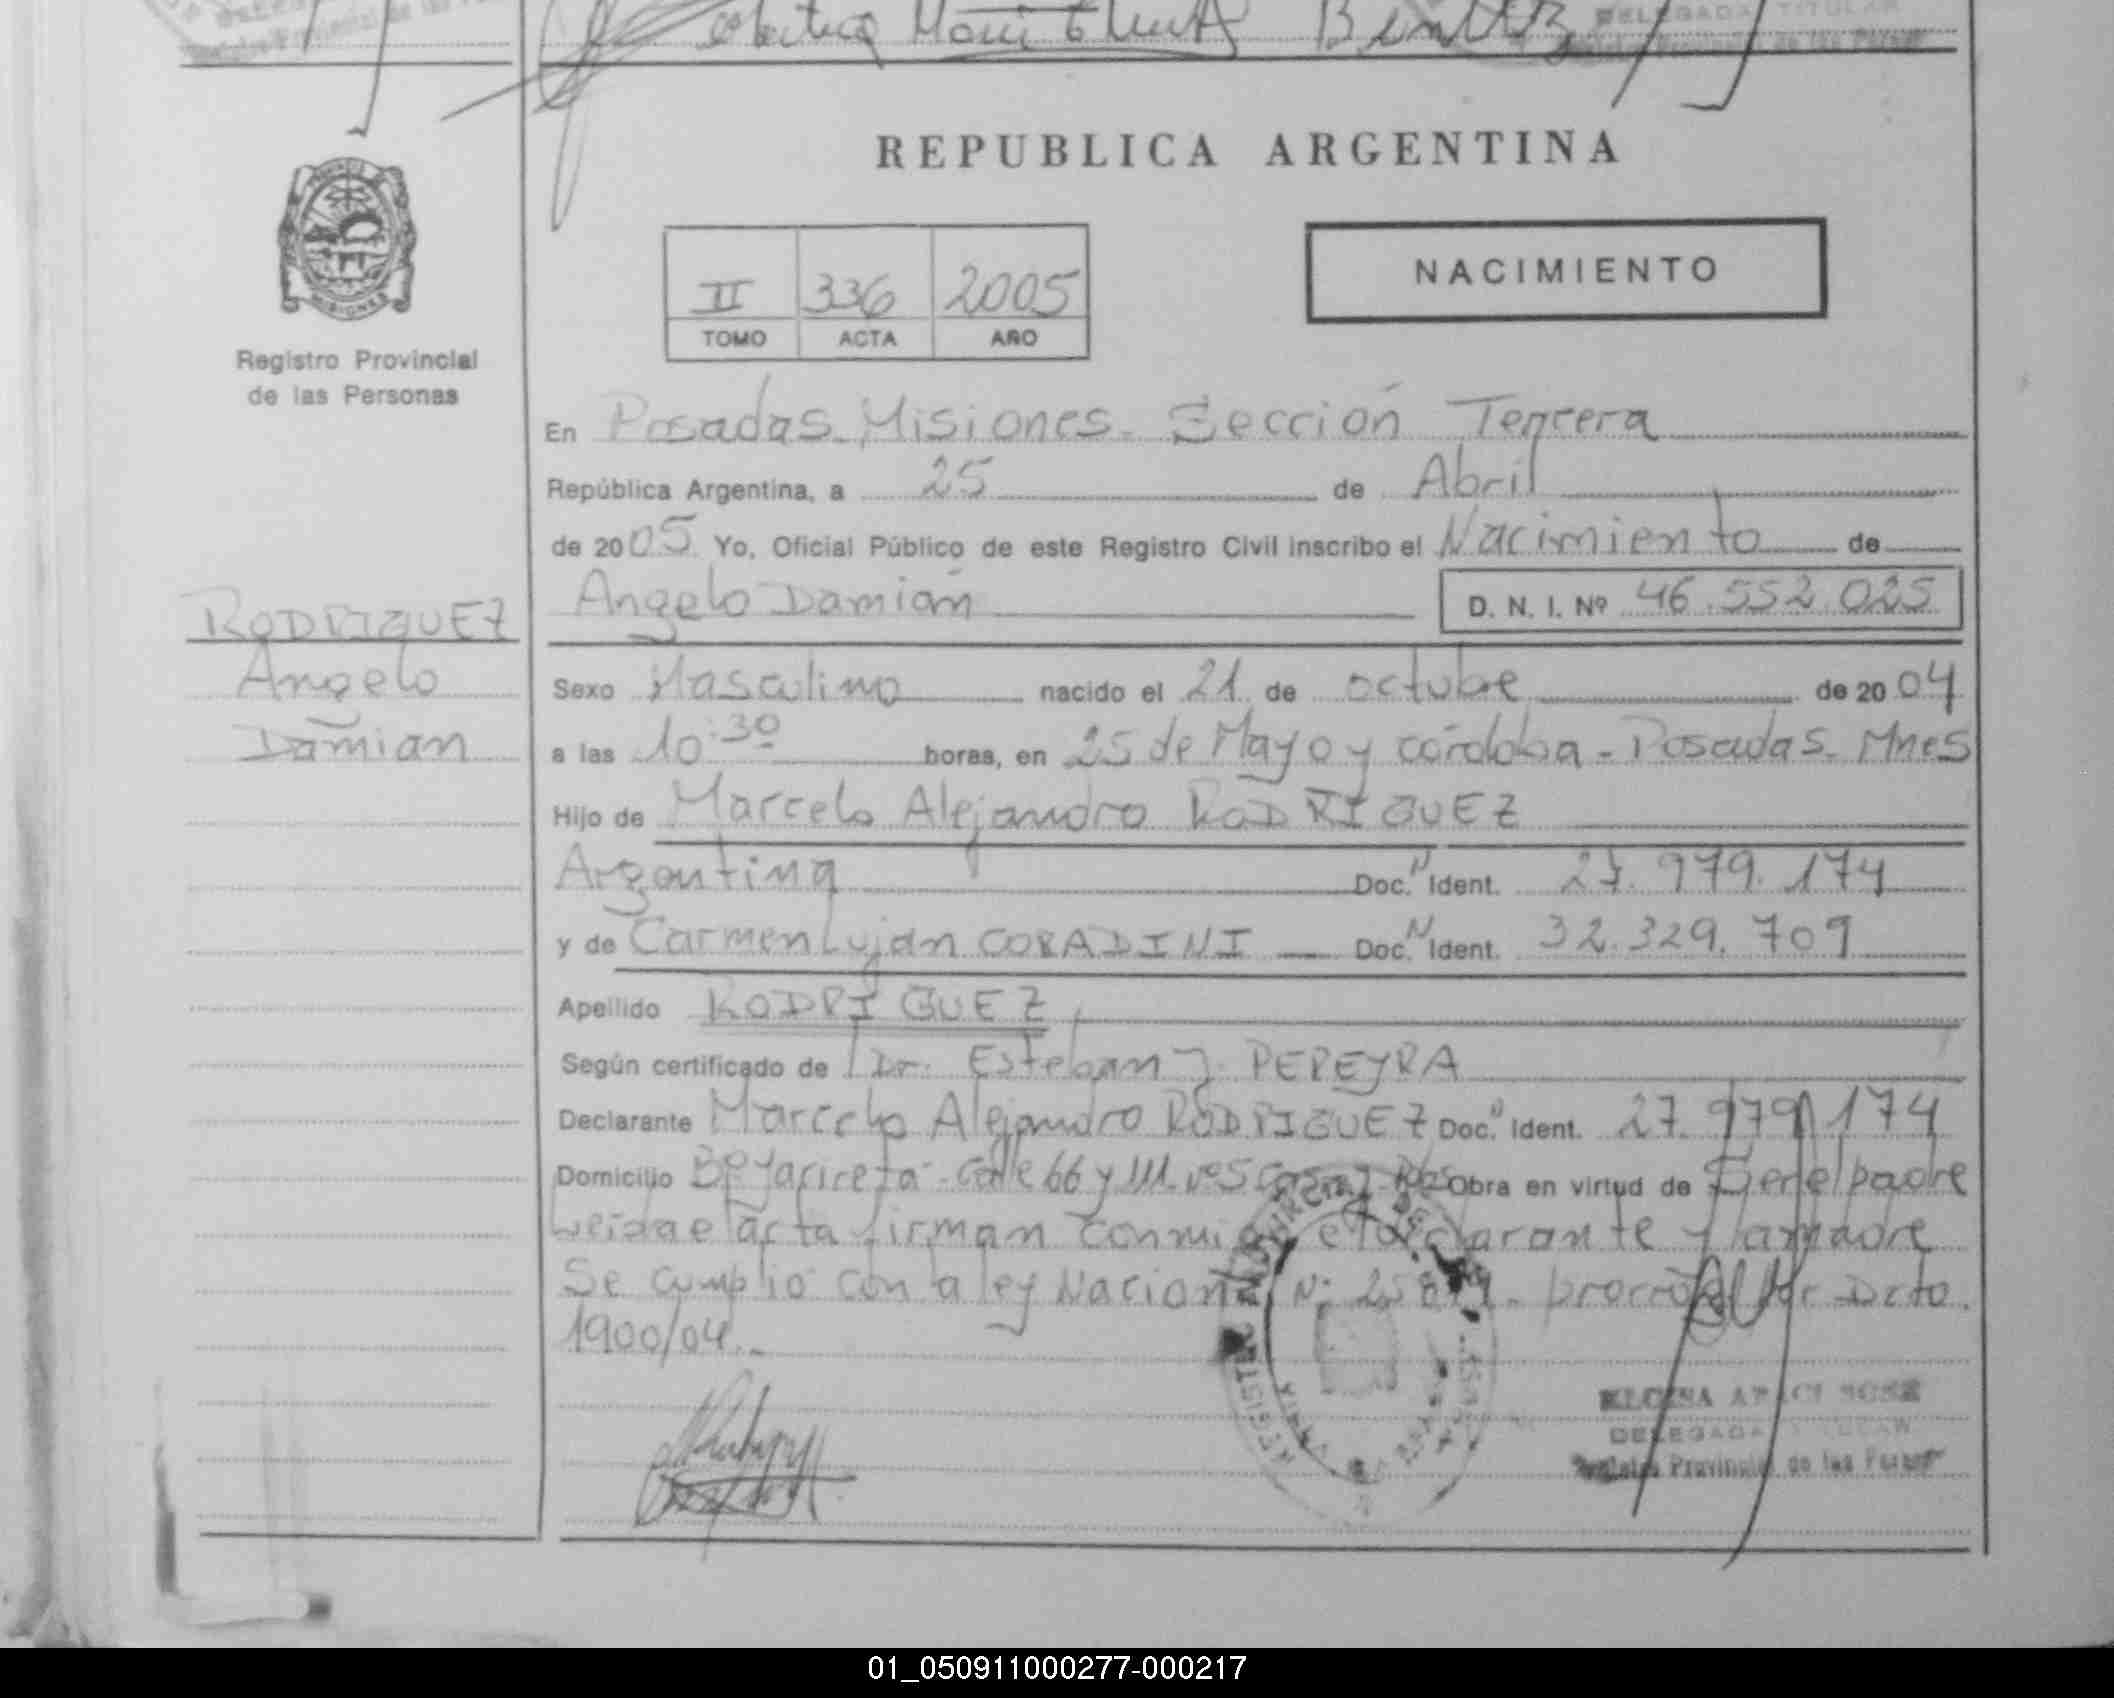 REPUBLICA ARGENTINA
MISIONES
Registro Provincial
de las Personas
II 336 2005
TOMO ACTA AÑO
NACIMIENTO
En Posadas - Misiones - Sección Tercera
República Argentina, a 25 de Abril
de 2005 Yo, Oficial Público de este Registro Civil inscribo el Nacimiento de
Angelo Damián D. N. I. Nº 46.552.025
RODRIGUEZ
Angelo
Damian
Sexo Masculino nacido el 21 de octubre de 2004
a las 10:30 horas, en 25 de Mayo y córdoba - Posadas - Mnes
Hijo de Marcelo Alejandro RODRIGUEZ
Argentina Doc. N Ident. 27.979.174
y de Carmen Lujan CORADINI Doc. N Ident. 32.329.709
Apellido RODRIGUEZ
Según certificado de Dr. Esteban J. PEREYRA
Declarante Marcelo Alejandro RODRIGUEZ Doc. N Ident. 27.979.174
Domicilio Bº Yacireta - Calle 66 y Obra en virtud de Ser el padre
Leida el acta firman conmigo el declarante y la madre
Se cumplio con la ley Nacional Nº Dcto.
1900/04.-
DELEGADA
Registro Provincial de las Person
01_050911000277-000217